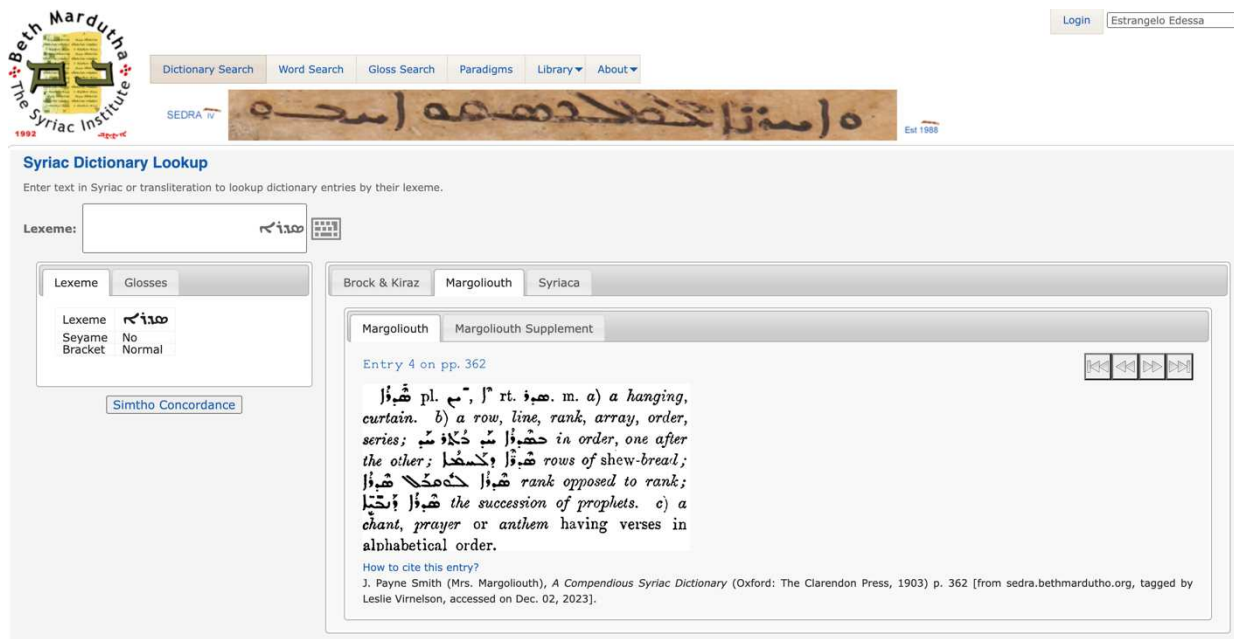 Beth Mardutho
The Syriac Institute
1992
Login
Estrangelo Edessa
Dictionary Search
Word Search
Gloss Search
Paradigms
Library
About
SEDRA IV
Est 1988
Syriac Dictionary Lookup
Enter text in Syriac or transliteration to lookup dictionary entries by their lexeme.
Lexeme: ܣܕܪܐ
Lexeme
Glosses
Lexeme ܣܕܪܐ
Seyame No
Bracket Normal
Simtho Concordance
Brock & Kiraz
Margoliouth
Syriaca
Margoliouth
Margoliouth Supplement
Entry 4 on pp. 362
pl. rt. ܣܕܪ. m. a) a hanging,
curtain. b) a row, line, rank, array, order,
series; in order, one after
the other; rows of shew-bread;
rank opposed to rank;
the succession of prophets. c) a
chant, prayer or anthem having verses in
alphabetical order.
How to cite this entry?
J. Payne Smith (Mrs. Margoliouth), A Compendious Syriac Dictionary (Oxford: The Clarendon Press, 1903) p. 362 [from sedra.bethmardutho.org, tagged by
Leslie Virnelson, accessed on Dec. 02, 2023].